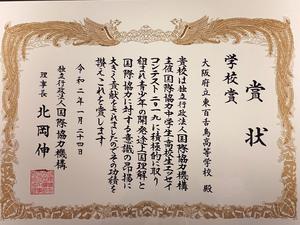 賞状
学校賞
大阪府立東百舌鳥高等学校 殿
貴校は独立行政法人国際協力機構
主催国際協力中学生・高校生エッセイ
コンテスト二〇一九に積極的に取り
組まれ青少年の開発途上国理解と
国際協力に対する意識の昂揚に
大きく貢献をされましたのでその功績を
讃えこれを賞します
令和二年一月二十四日
独立行政法人国際協力機構
理事長 北岡伸一